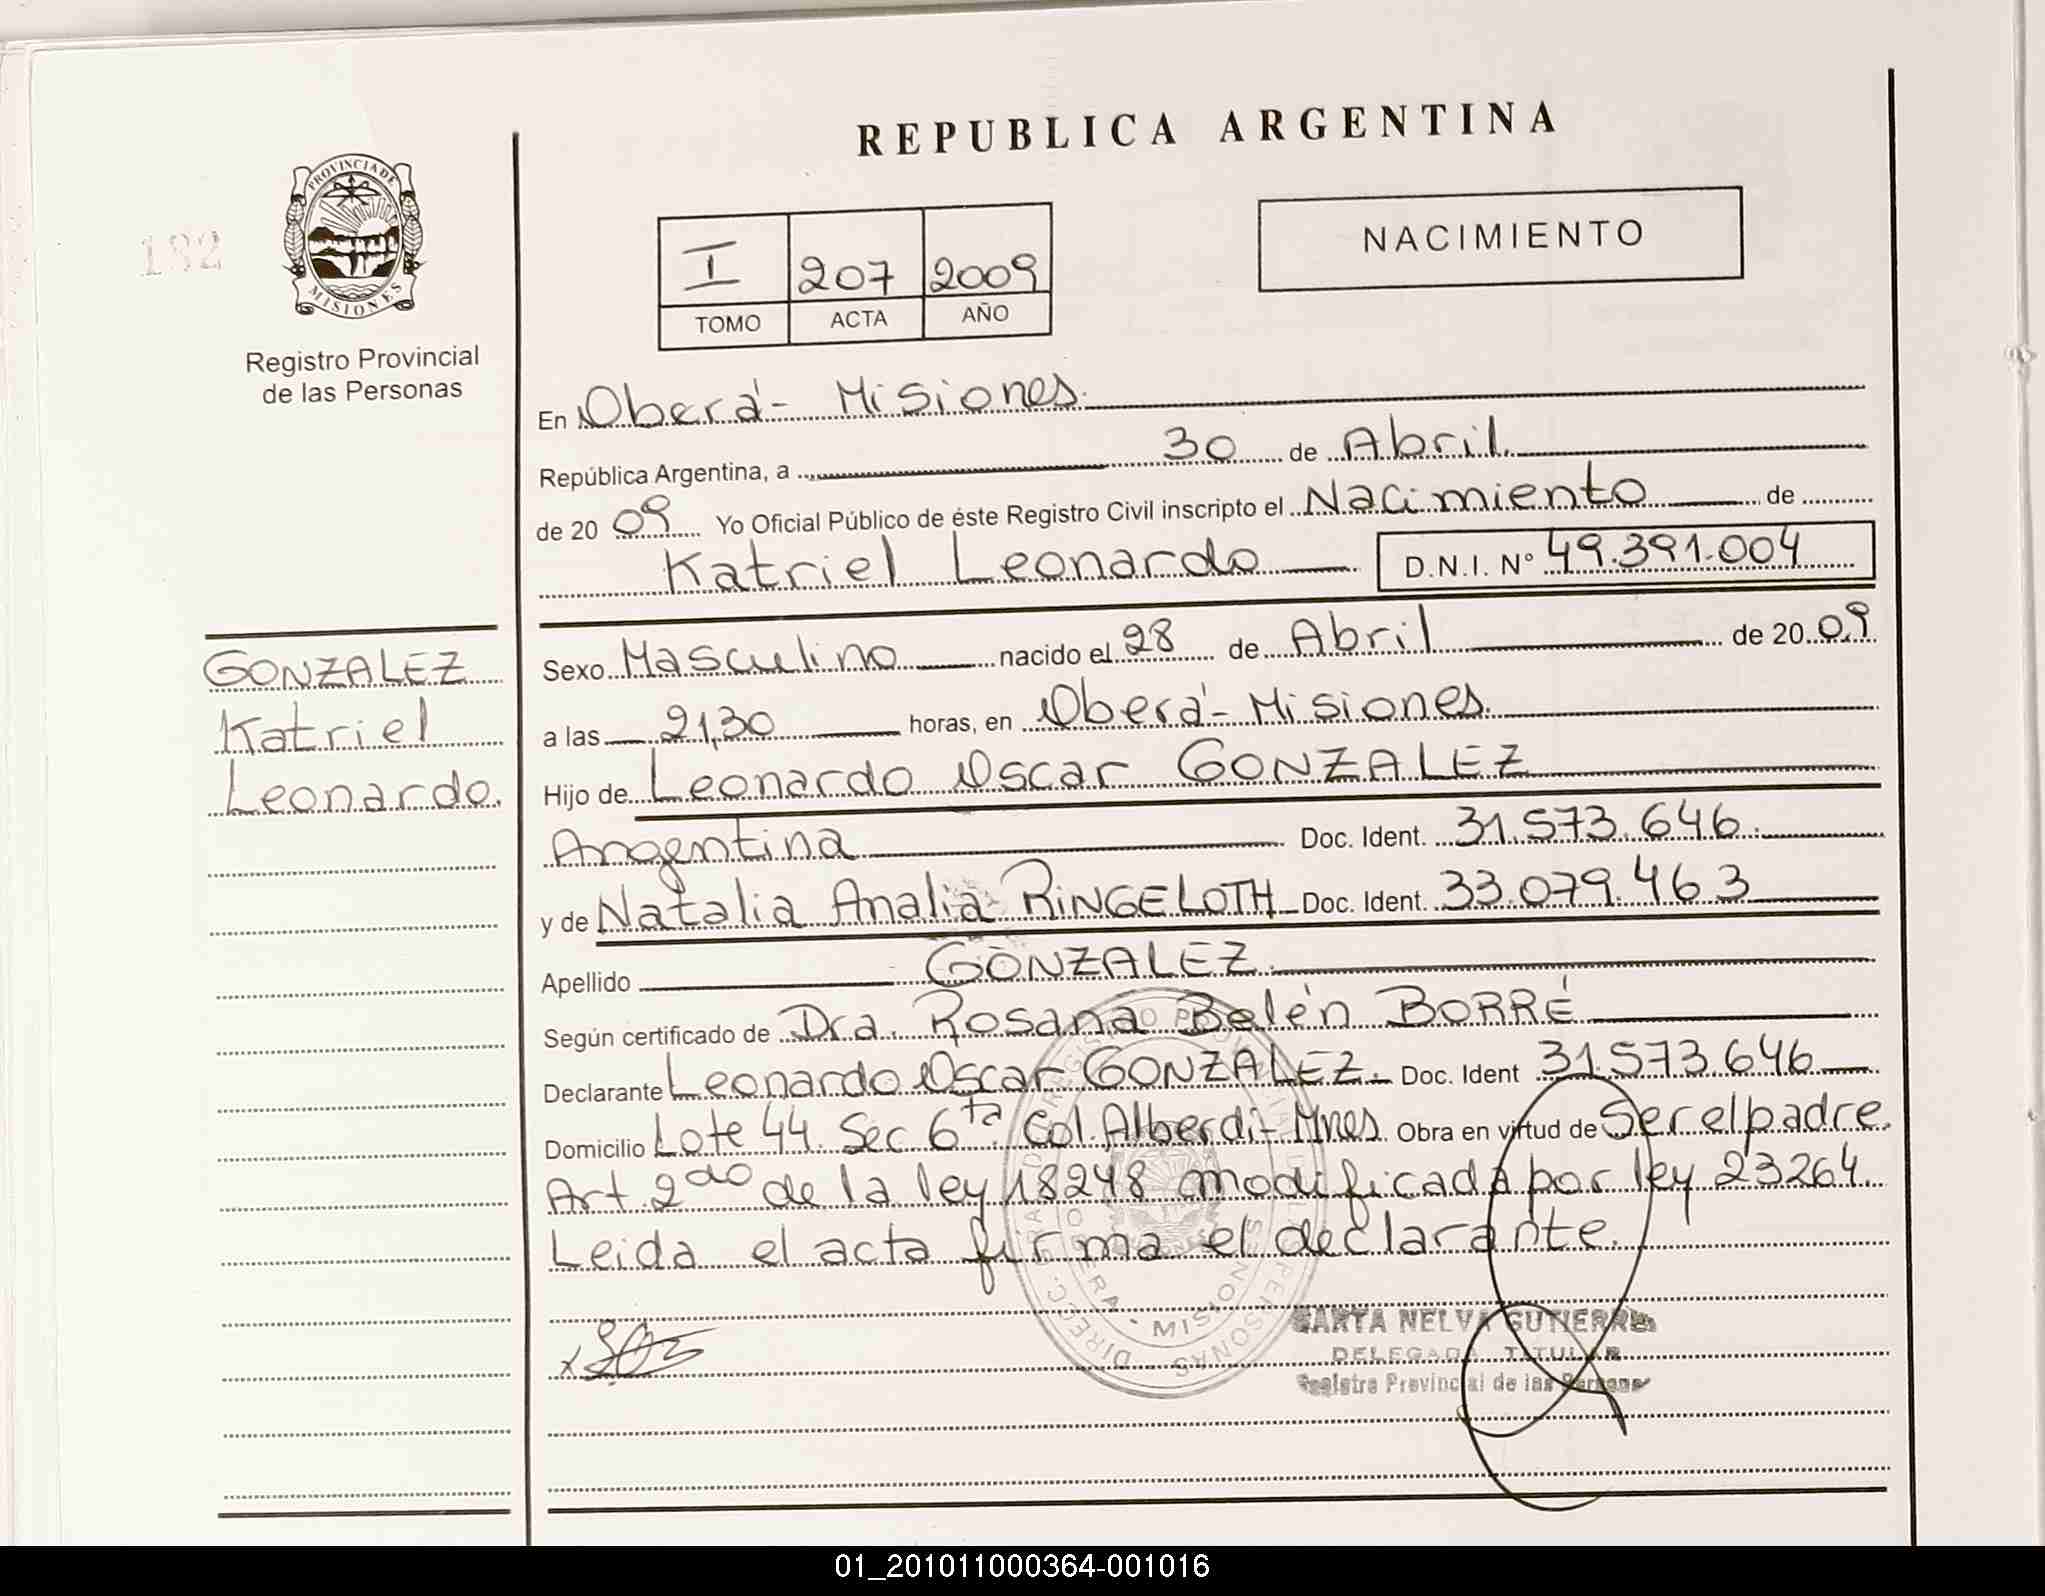 REPUBLICA ARGENTINA
PROVINCIA DE
MISIONES
182
Registro Provincial
de las Personas
NACIMIENTO
I 207 2009
TOMO ACTA AÑO
En Oberá - Misiones.
República Argentina, a 30 de Abril.
de 2009 Yo Oficial Público de éste Registro Civil inscripto el Nacimiento de
Katriel Leonardo D.N.I. Nº 49.391.004
GONZALEZ
Katriel
Leonardo.
Sexo Masculino nacido el 28 de Abril de 2009
a las 21,30 horas, en Oberá - Misiones.
Hijo de Leonardo Oscar GONZALEZ
Argentina Doc. Ident. 31.573.646.
y de Natalia Analia RINGELOTH Doc. Ident. 33.079.463
Apellido GONZALEZ.
Según certificado de Dra. Rosana Belén BORRÉ
Declarante Leonardo Oscar GONZALEZ. Doc. Ident 31.573.646
Domicilio Lote 44. Sec 6ta. Col. Alberdi - Mnes. Obra en virtud de Ser el padre.
Art. 2do de la ley 18248 modificada por ley 23264.
Leida el acta firma el declarante.
MISIONES
NELVA GUTIERRE
DELEGADA TITULAR
Registro Provincial de las Personas
01_201011000364-001016